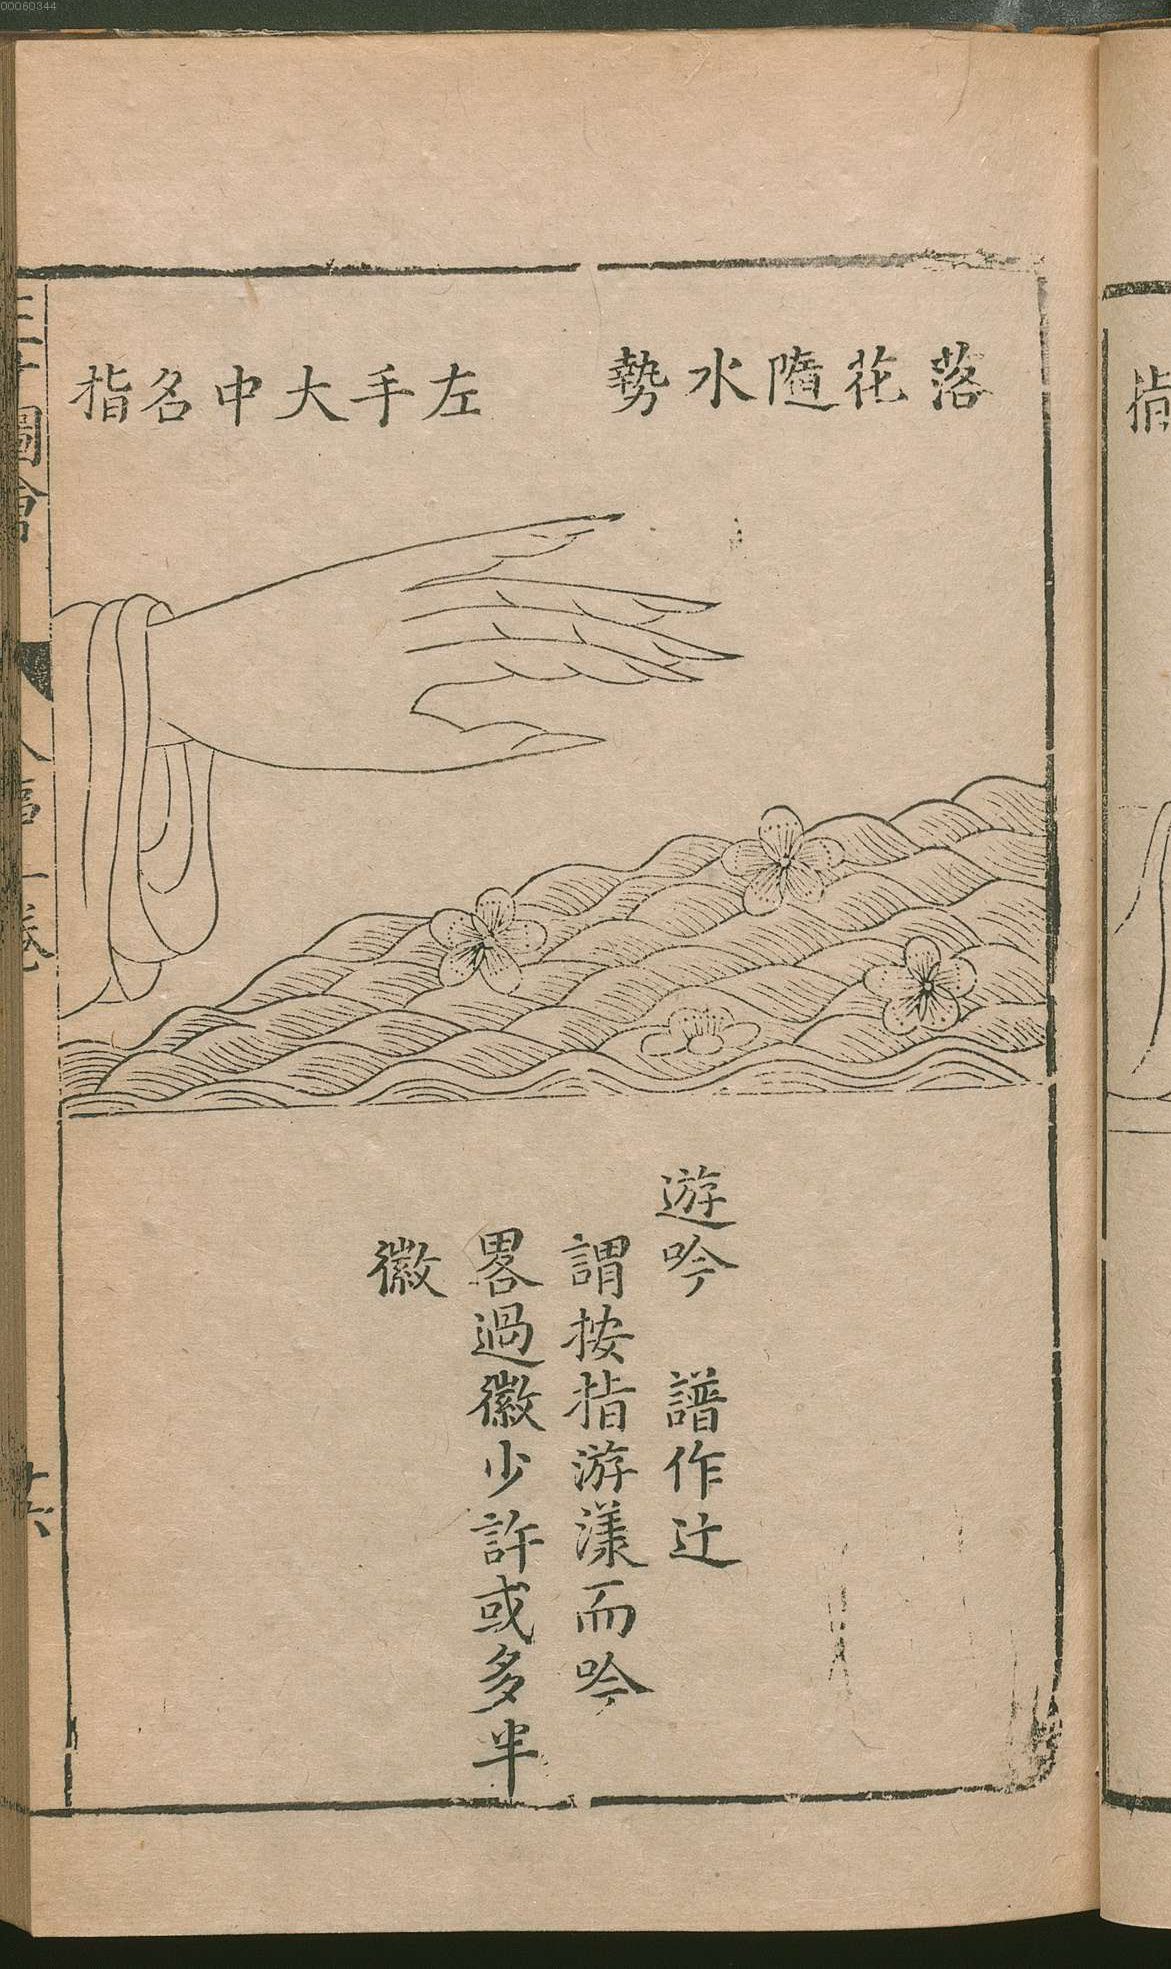 00060344
落花隨水勢
左手大中名指
遊吟 譜作辶
謂按指游漾而吟
畧過徽少許或多半
徽
圖會
指